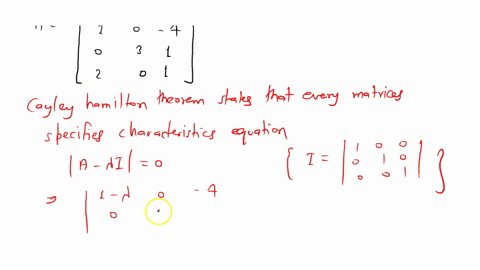 1 0 -4
0 3 1
2 0 1
Cayley hamilton theorem states that every matrices
specifies characteristics equation
|A - λI| = 0
{ I = | 1 0 0
0 1 0
0 0 1 | }
⇒ | 1-λ 0 -4
0